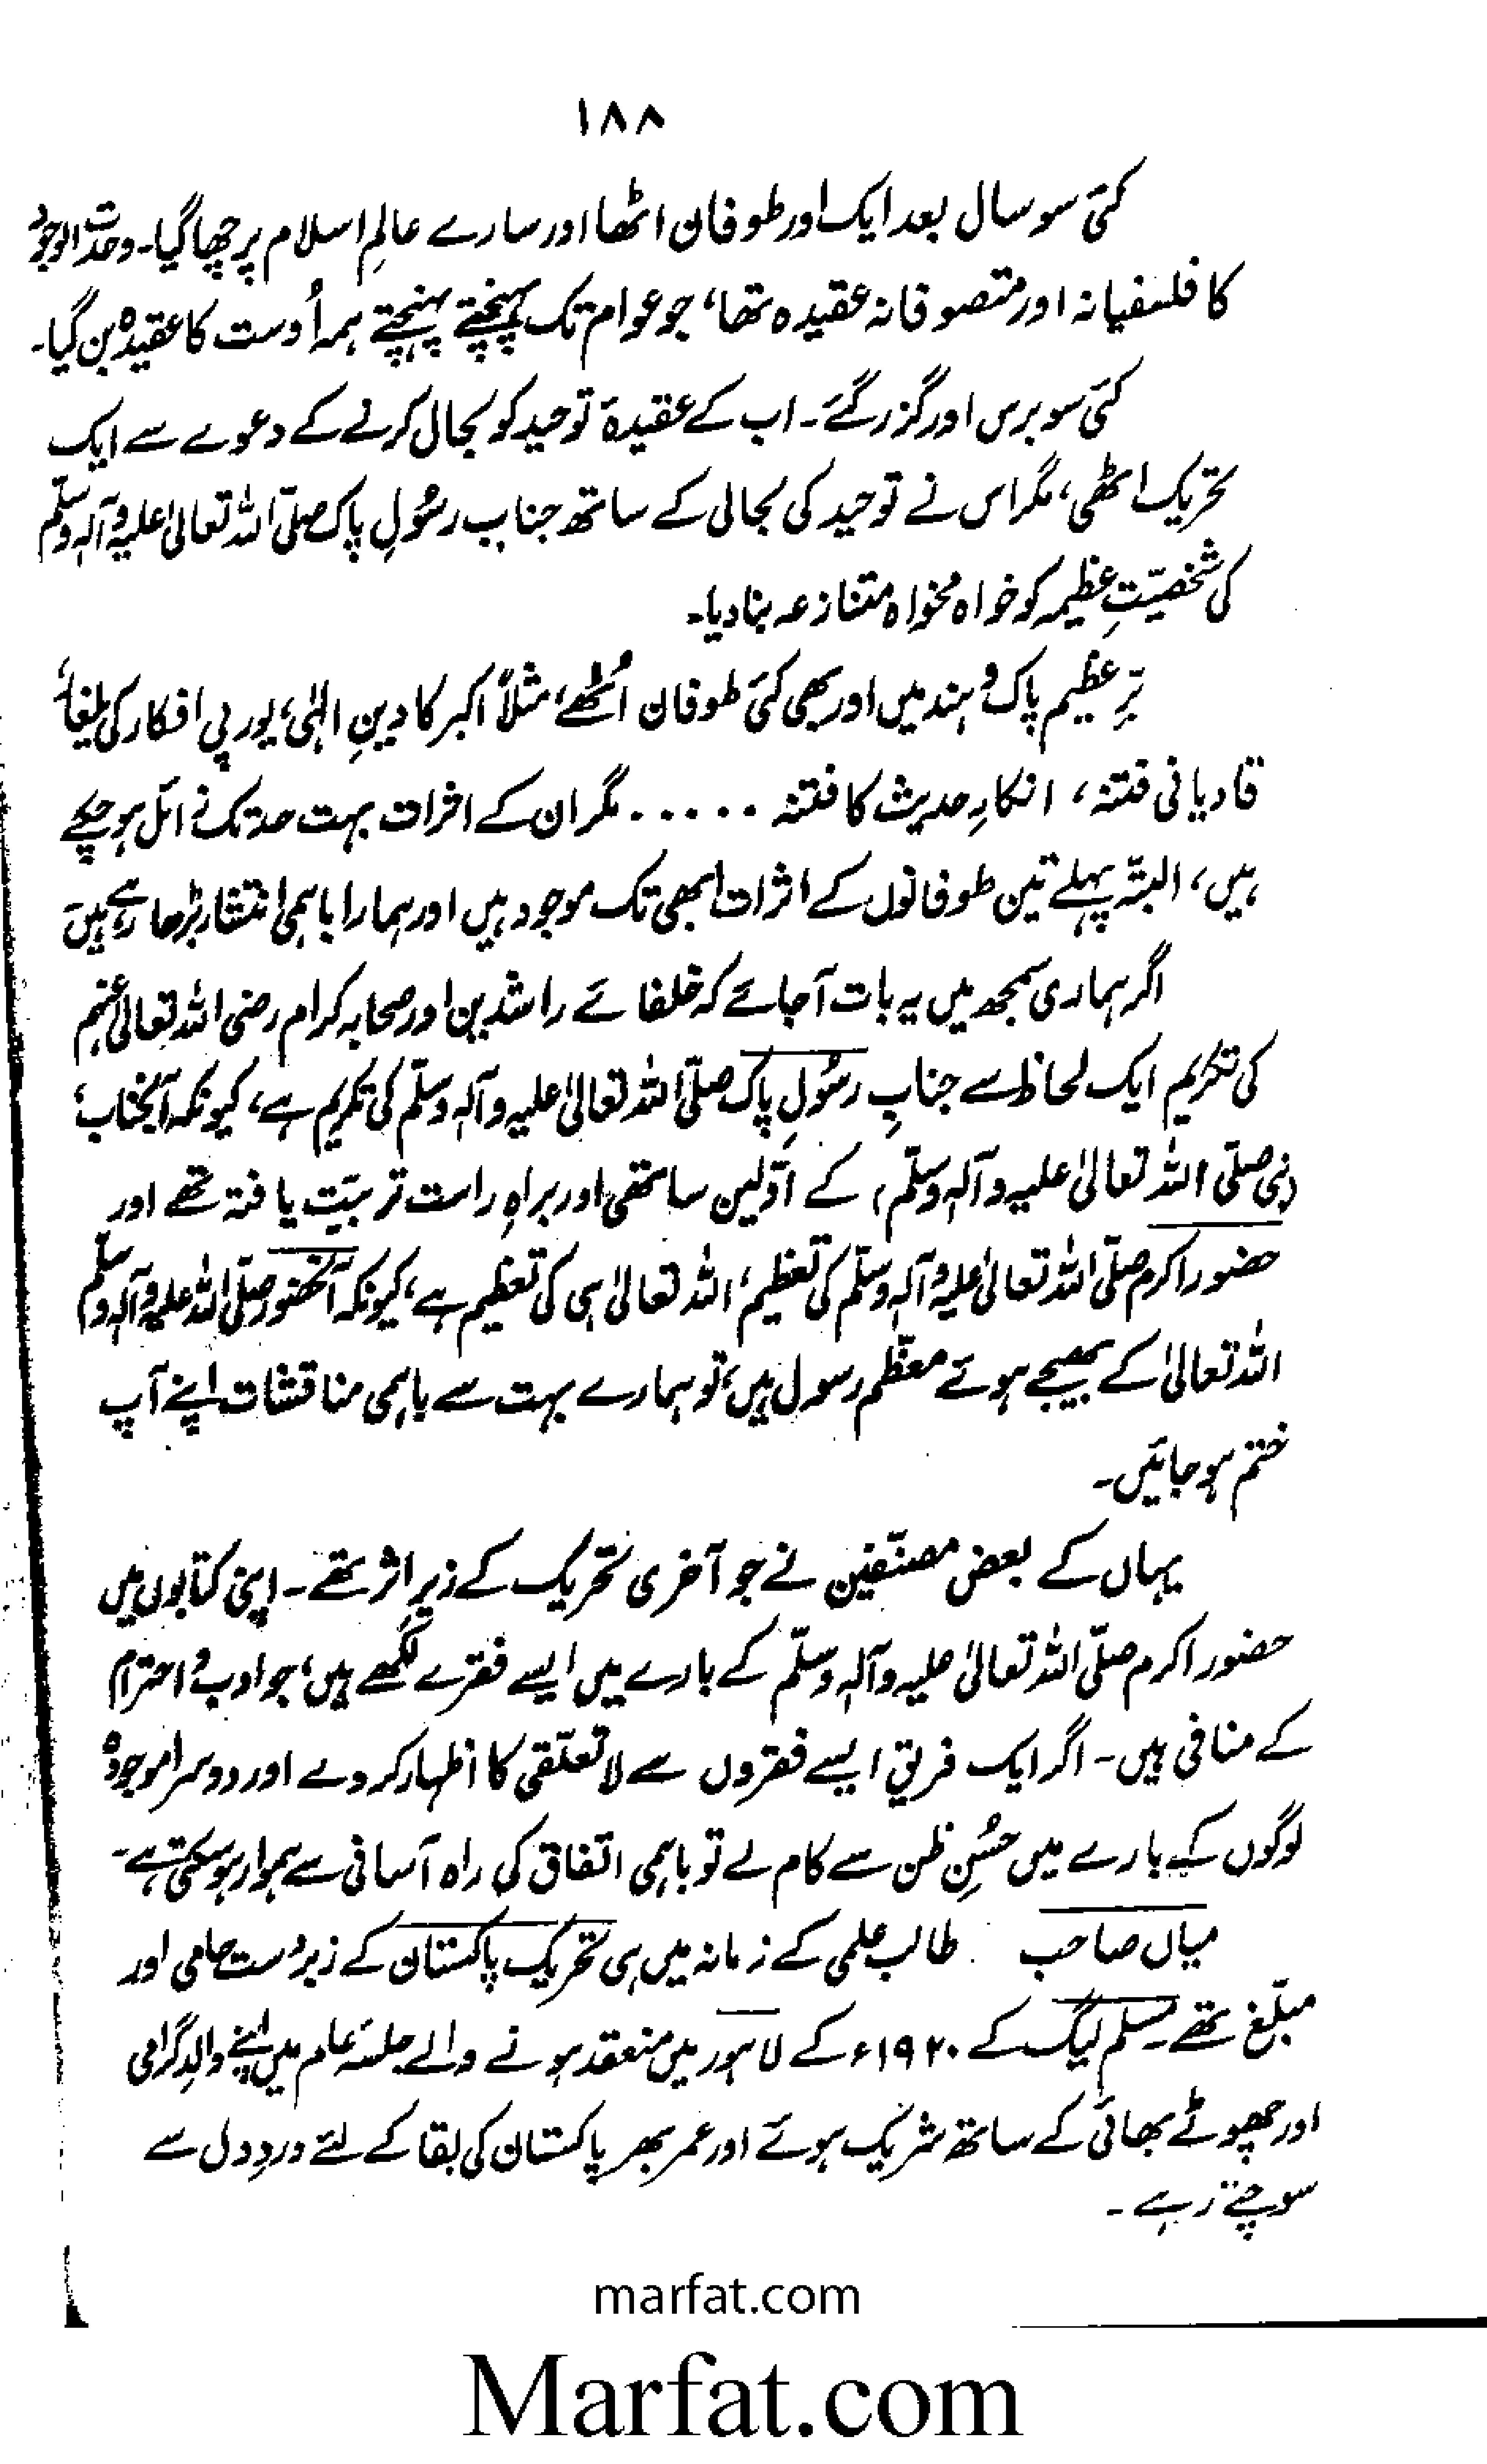 ۱۸۸
کئی سو سال بعد ایک اور طوفان اٹھا اور سارے عالمِ اسلام پر چھا گیا۔ وحدت الوجود
کا فلسفیانہ اور متصوفانہ عقیدہ تھا، جو عوام تک پہنچتے پہنچتے ہمہ اُوست کا عقیدہ بن گیا۔
کئی سو برس اور گزر گئے۔ اب کے عقیدۂ توحید کو بحال کرنے کے دعوے سے ایک
تحریک اٹھی، مگر اس نے توحید کی بحالی کے ساتھ جناب رسُولِ پاک صلّی اللہ تعالیٰ علیہ وآلہٖ وسلّم
کی شخصیّتِ عظیمہ کو خواہ مخواہ متنازعہ بنا دیا۔
برِّ عظیم پاک و ہند میں اور بھی کئی طوفان اُٹھے، مثلاً اکبر کا دینِ الہٰی، یورپی افکار کی یلغار،
قادیانی فتنہ، انکارِ حدیث کا فتنہ ...... مگر ان کے اثرات بہت حد تک زائل ہو چکے
ہیں، البتّہ پہلے تین طوفانوں کے اثرات ابھی تک موجود ہیں اور ہمارا باہمی انتشار بڑھا رہے ہیں
اگر ہماری سمجھ میں یہ بات آ جائے کہ خلفائے راشدین اور صحابہ کرام رضی اللہ تعالیٰ عنہم
کی تکریم ایک لحاظ سے جنابِ رسُولِ پاک صلّی اللہ تعالیٰ علیہ وآلہٖ وسلّم کی تکریم ہے، کیونکہ آنجناب
(نبی صلّی اللہ تعالیٰ علیہ وآلہٖ وسلّم) کے اوّلین ساتھی اور براہِ راست تربیّت یافتہ تھے اور
حضور اکرم صلّی اللہ تعالیٰ علیہ وآلہٖ وسلّم کی تعظیم، اللہ تعالیٰ ہی کی تعظیم ہے، کیونکہ آنحضور صلّی اللہ علیہ وآلہٖ وسلّم
اللہ تعالیٰ کے بھیجے ہوئے معظّم رسول ہیں، تو ہمارے بہت سے باہمی مناقشات اپنے آپ
ختم ہو جائیں۔
یہاں کے بعض مصنّفین نے جو آخری تحریک کے زیرِ اثر تھے۔ اپنی کتابوں میں
حضور اکرم صلّی اللہ تعالیٰ علیہ وآلہٖ وسلّم کے بارے میں ایسے فقرے لکھے ہیں، جو ادب و احترام
کے منافی ہیں۔ اگر ایک فریق ایسے فقروں سے لا تعلّقی کا اظہار کر دے اور دوسرا موجودہ
لوگوں کے بارے میں حُسنِ ظن سے کام لے تو باہمی اتفاق کی راہ آسانی سے ہموار ہو سکتی ہے۔
میاں صاحب طالب علمی کے زمانہ میں ہی تحریک پاکستان کے زبردست حامی اور
مبلّغ تھے۔ مسلم لیگ کے ۱۹۲۰ء کے لاہور میں منعقد ہونے والے جلسۂ عام میں اپنے والدِ گرامی
اور چھوٹے بھائی کے ساتھ شریک ہوئے اور عمر بھر پاکستان کی بقا کے لئے دردِ دل سے
سوچتے رہے۔
marfat.com
Marfat.com